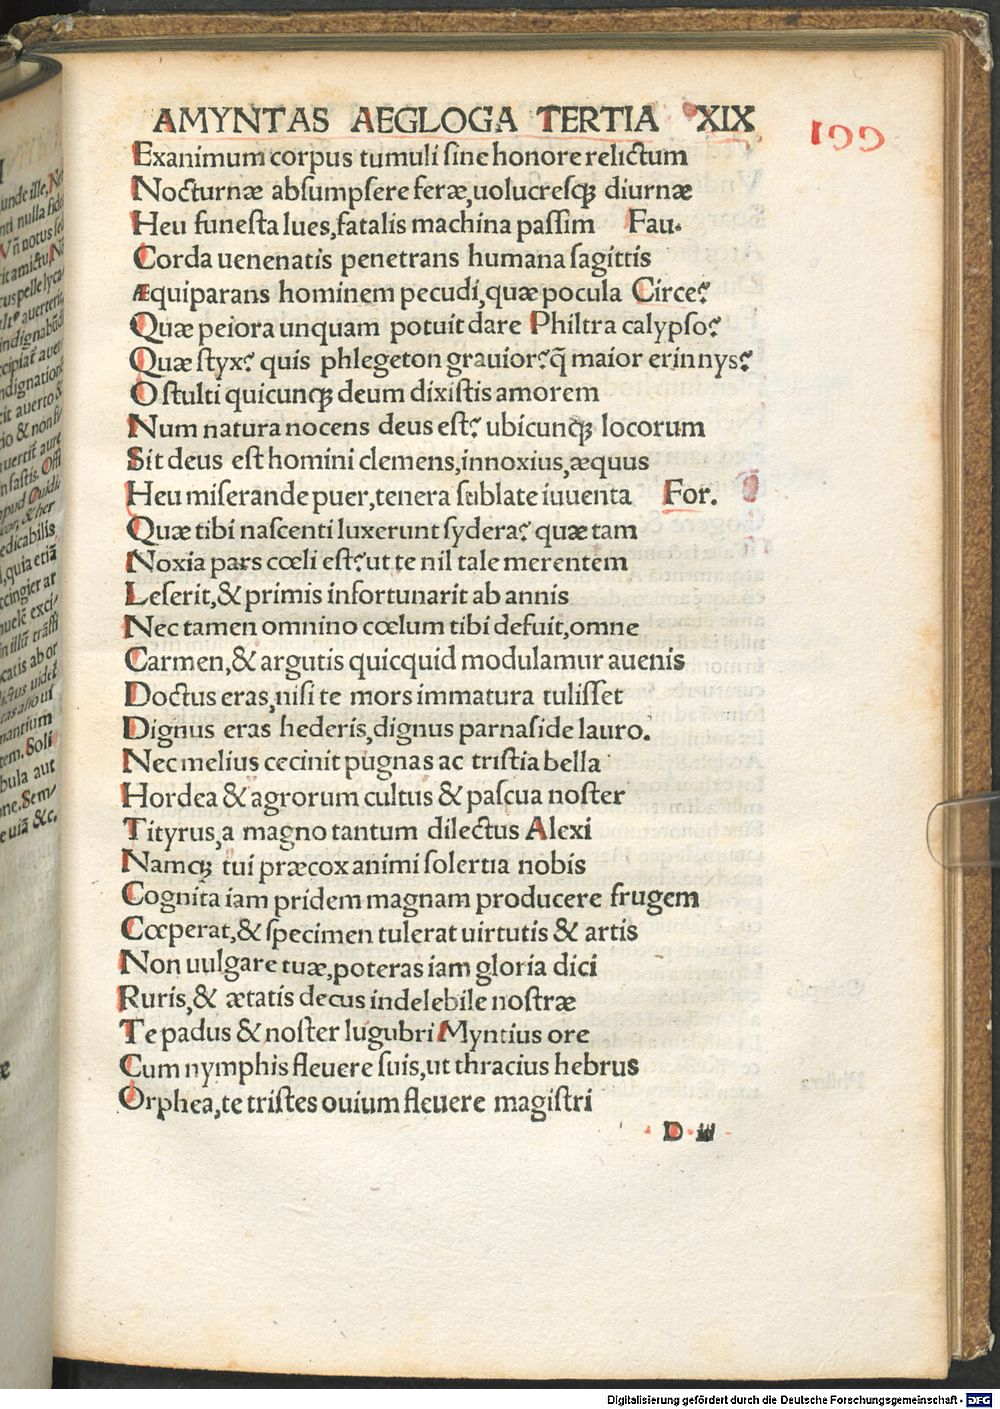 AMYNTAS AEGLOGA TERTIA XIX
199
Exanimum corpus tumuli ſine honore relictum
Nocturnæ abſumpſere feræ,uolucreſqꝫ diurnæ
Heu funeſta lues,fatalis machina paſſim Fau.
Corda uenenatis penetrans humana ſagittis
Æquiparans hominem pecudi,quæ pocula Circe?
Quæ peiora unquam potuit dare Philtra calypſo?
Quæ ſtyx? quis phlegeton grauior?q̃ maior erinnys?
O ſtulti quicunqꝫ deum dixiſtis amorem
Num natura nocens deus eſt? ubicunqꝫ locorum
Sit deus eſt homini clemens,innoxius,æquus
Heu miſerande puer,tenera ſublate iuuenta For.
Quæ tibi naſcenti luxerunt ſydera? quæ tam
Noxia pars cœli eſt?ut te nil tale merentem
Leſerit,& primis infortunarit ab annis
Nec tamen omnino cœlum tibi defuit,omne
Carmen,& argutis quicquid modulamur auenis
Doctus eras,niſi te mors immatura tuliſſet
Dignus eras hederis,dignus parnaſide lauro.
Nec melius cecinit pugnas ac triſtia bella
Hordea & agrorum cultus & paſcua noſter
Tityrus,a magno tantum dilectus Alexi
Namqꝫ tui præcox animi ſolertia nobis
Cognita iam pridem magnam producere frugem
Cœperat,& ſpecimen tulerat uirtutis & artis
Non uulgare tuæ,poteras iam gloria dici
Ruris,& ætatis decus indelebile noſtræ
Te padus & noſter lugubri Myntius ore
Cum nymphis fleuere ſuis,ut thracius hebrus
Orphea,te triſtes ouium fleuere magiſtri
D iii
Digitalisierung gefördert durch die Deutsche Forschungsgemeinschaft - DFG